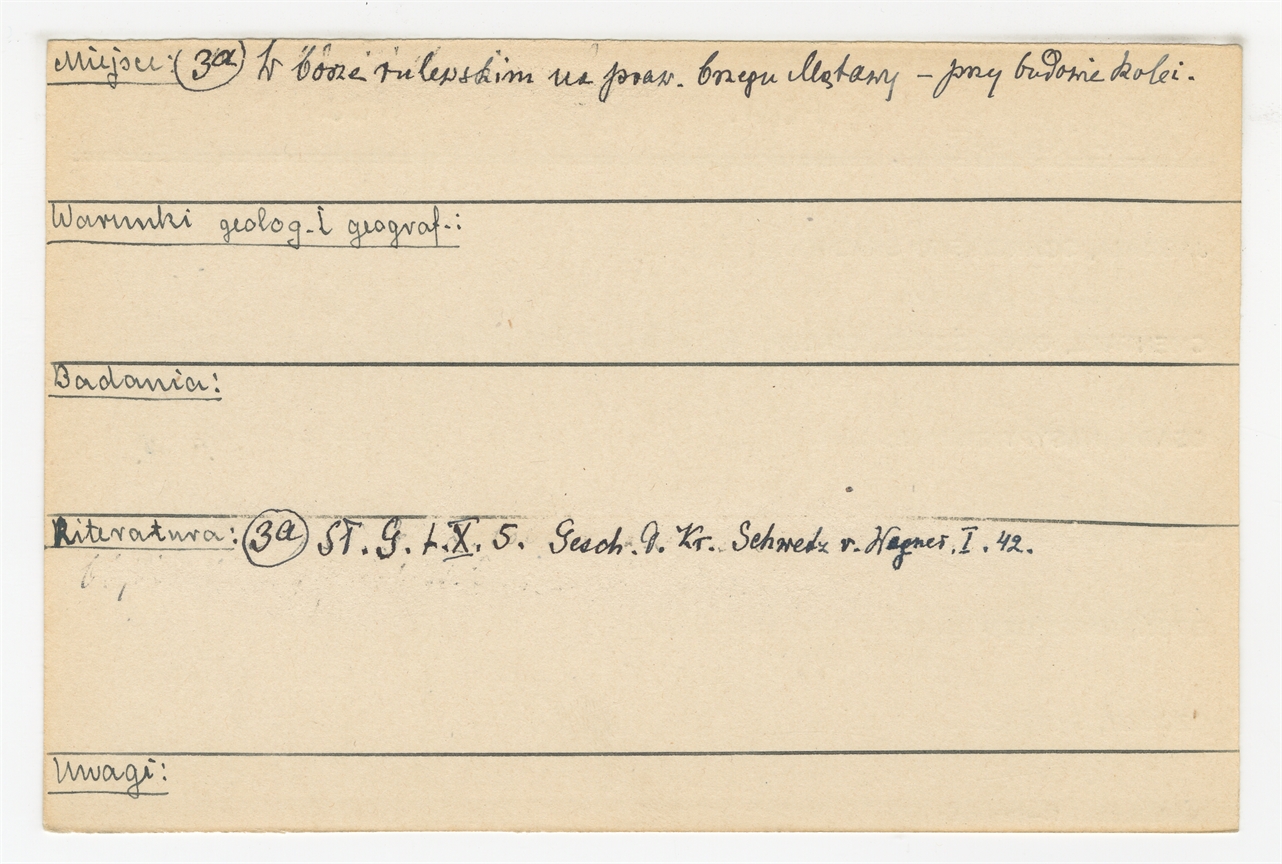 Miejsce: (3a) W borze rulewskim na praw. brzegu Mątawy – przy budowie kolei.
Warunki geolog. i geograf.:
Badania:
Literatura: (3a) Sł. G. t. X. 5. Gesch. d. Kr. Schwetz v. Wegner. I. 42.
Uwagi: